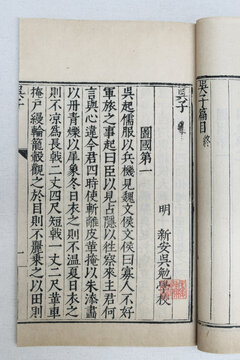 吳子篇目 終
吳子
明 新安吳勉學校
圖國第一
吳起儒服以兵機見魏文侯文侯曰寡人不好
軍旅之事起曰臣以見占隱以往察來主君何
言與心違今君四時使斬離皮革掩以朱漆畫
以丹青爍以犀象冬日衣之則不溫夏日衣之
則不凉爲長戟二丈四尺短戟一丈二尺革車
掩戶縵輪籠轂觀之於目則不麗乘之以田則
吳子 一